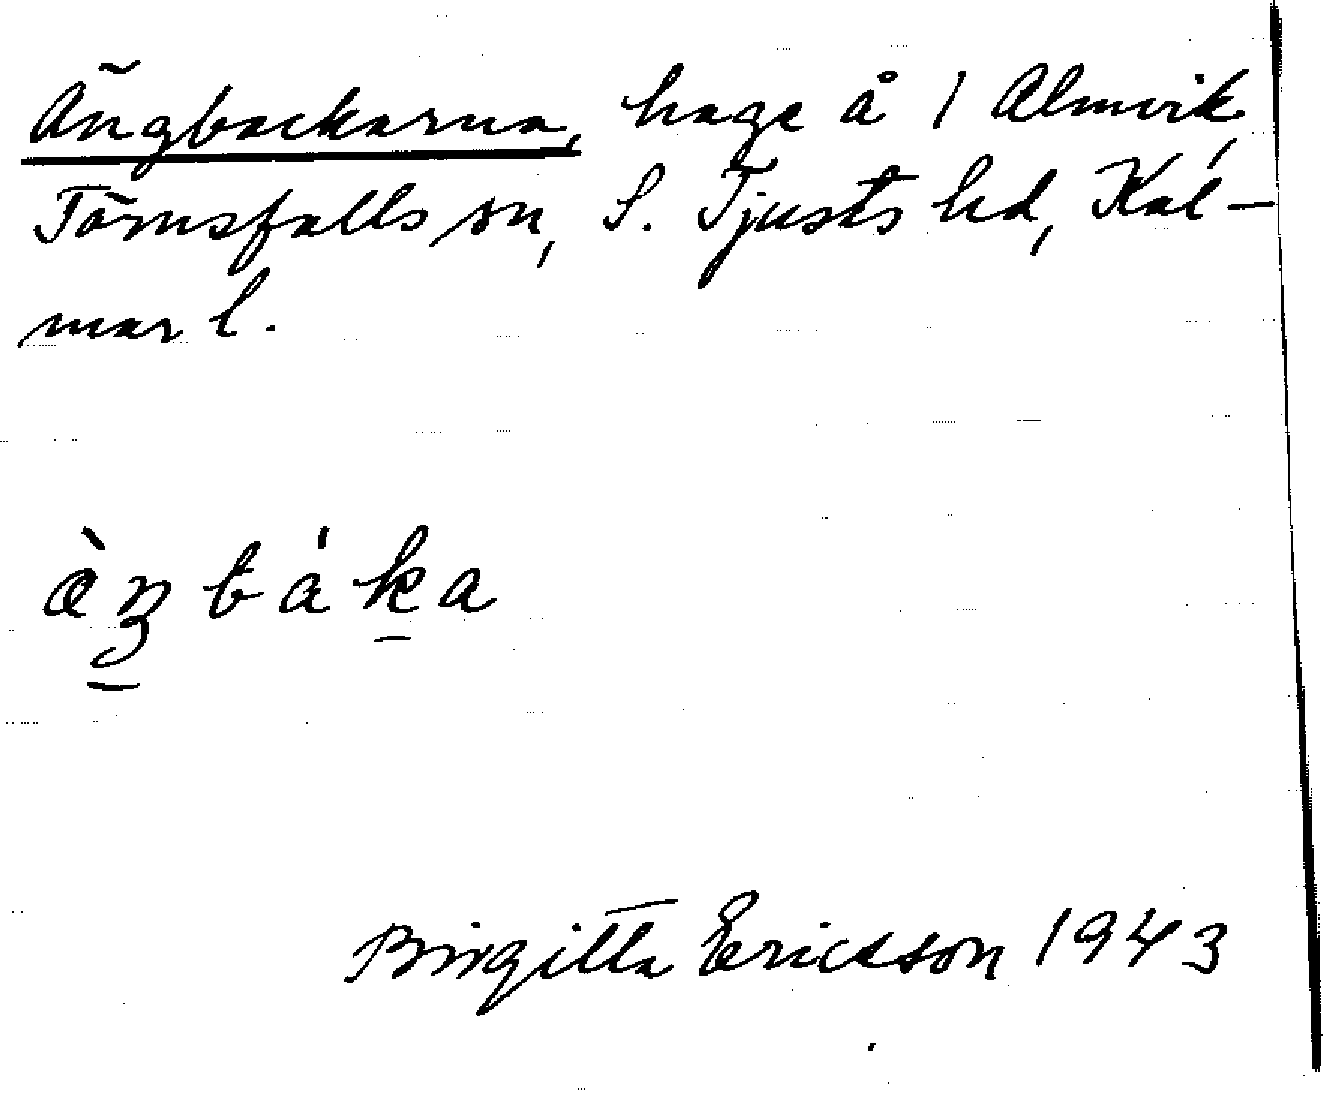 Ängbackarna, hage å 1 Almvik,
Törnsfalls sn, S. Tjusts hd, Kal-
mar l.
Birgitta Ericsson 1943